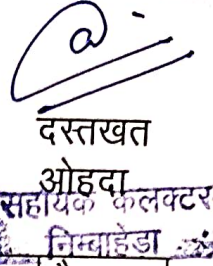 दस्तखत
ओहदा
सहायक कलक्टर
निम्बाहेडा